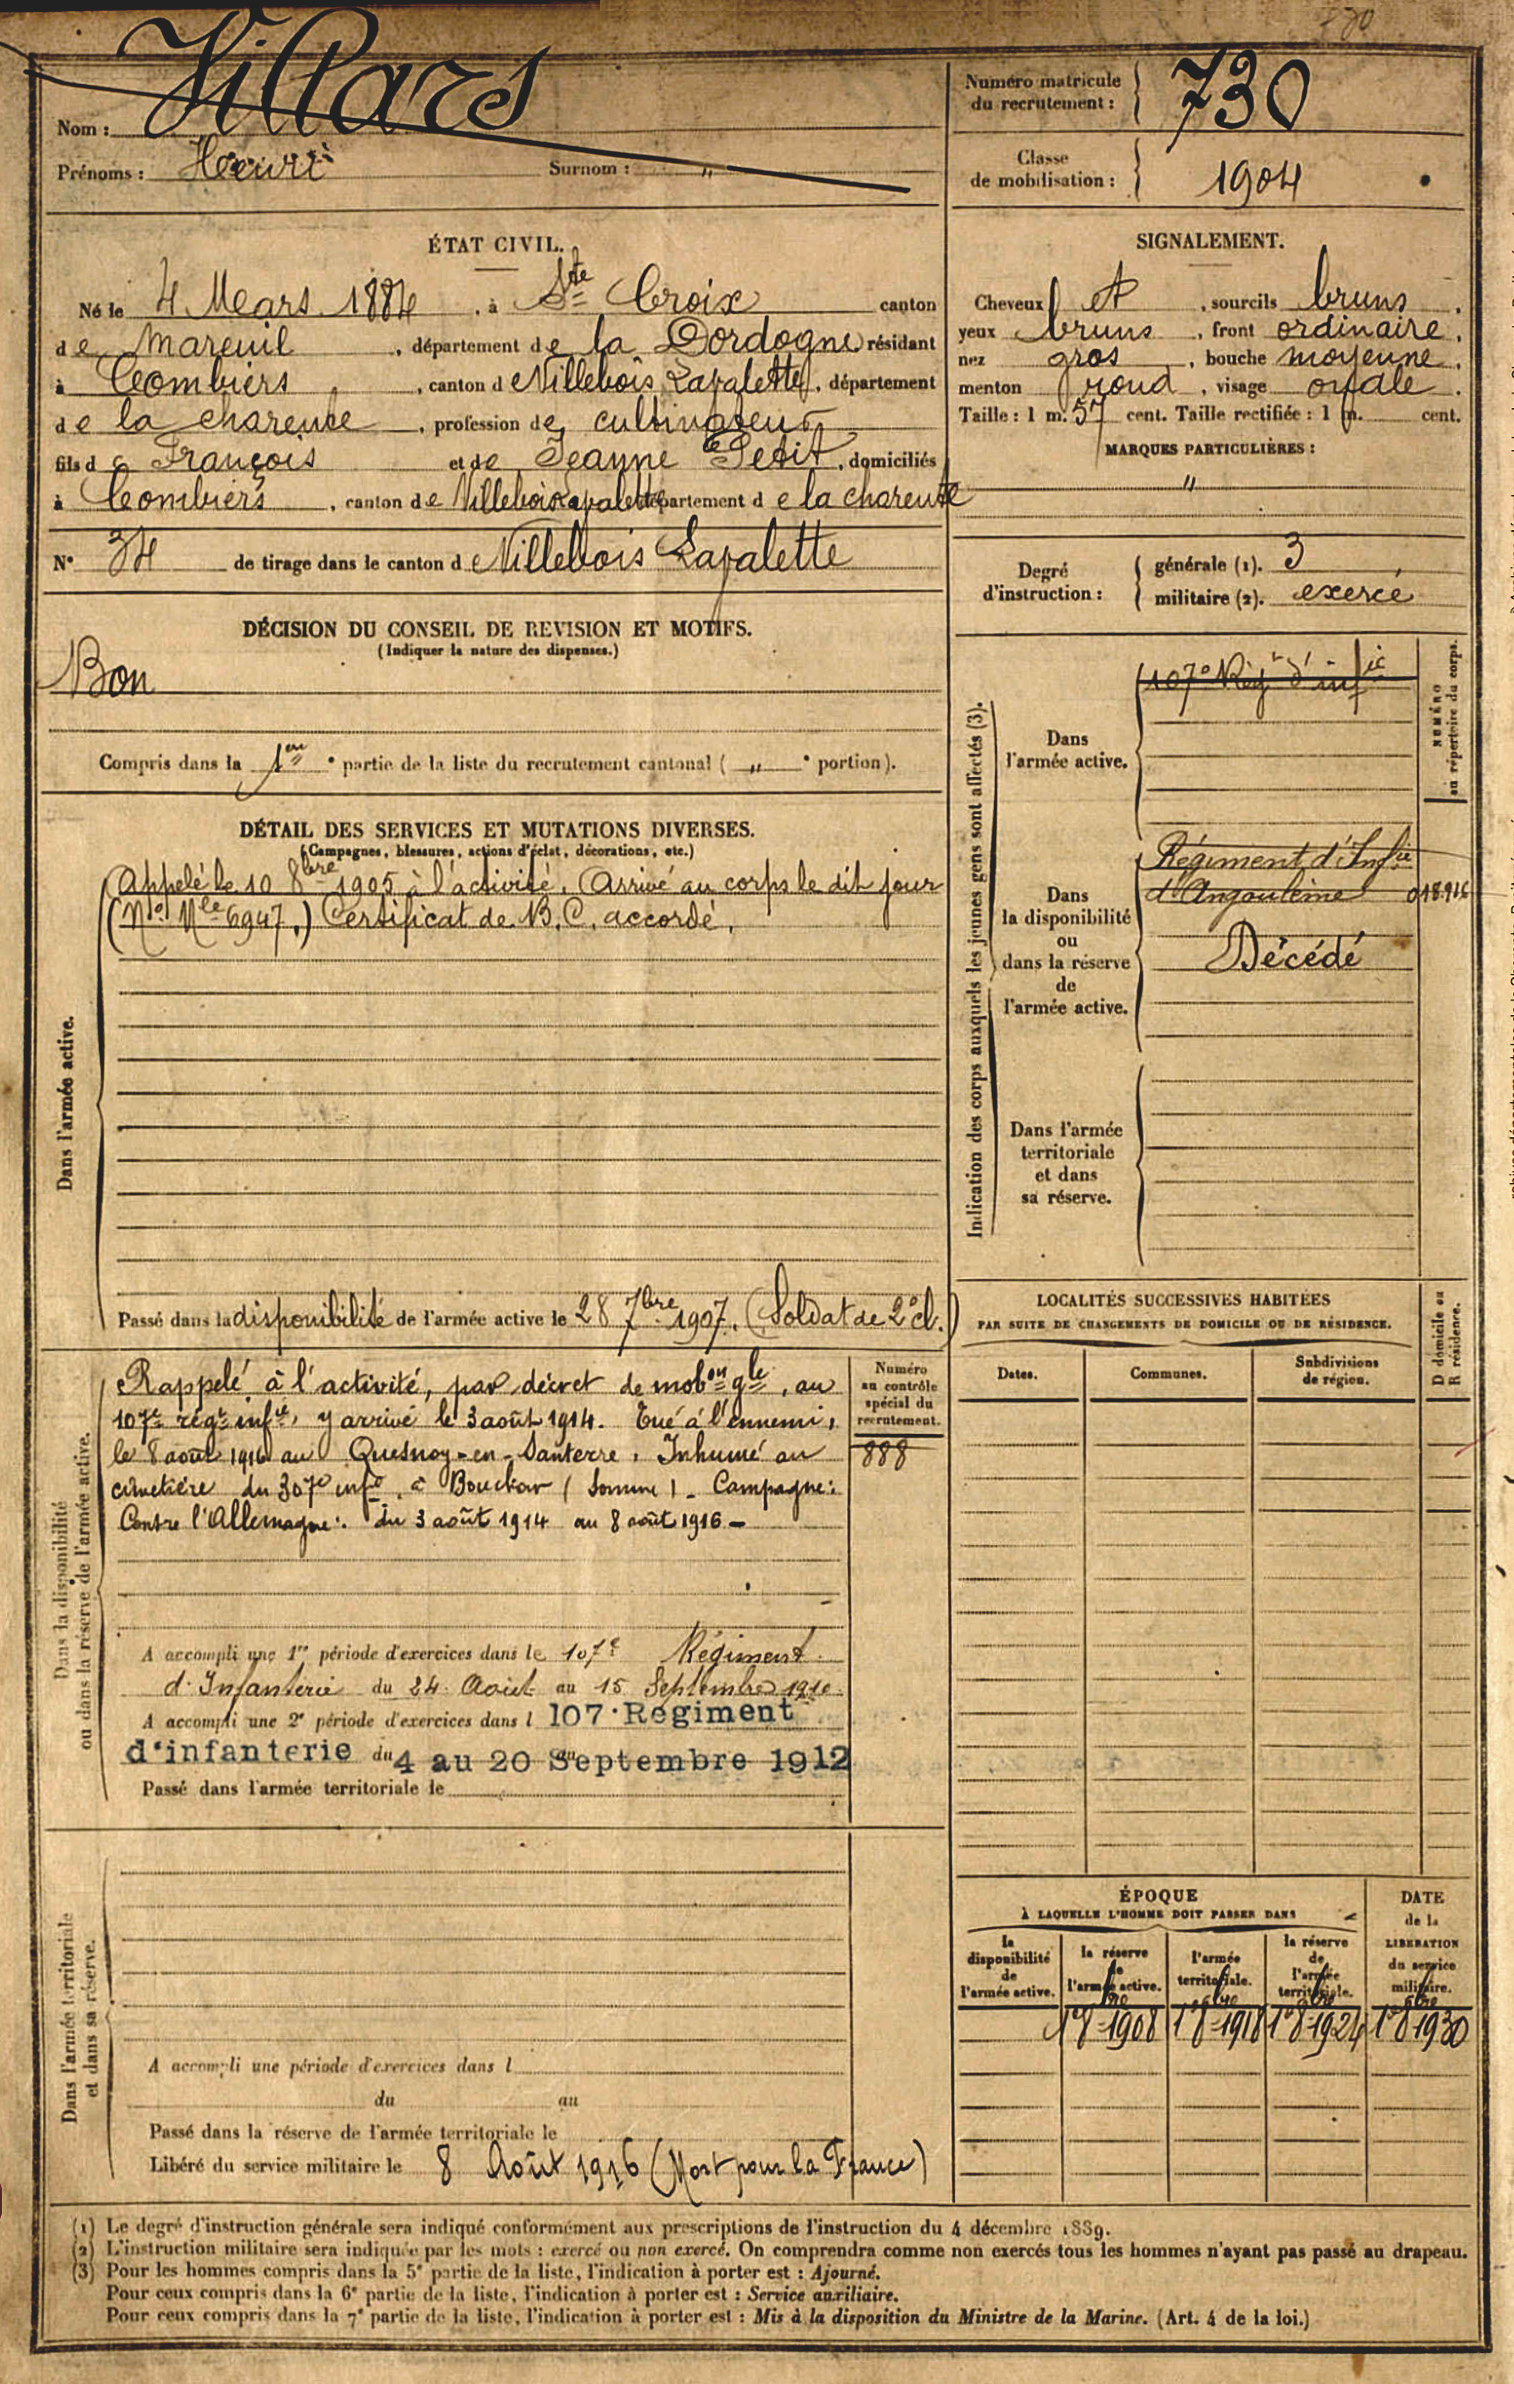 730
Nom : Villars
Prénoms : Henri Surnom : "
Numéro matricule
du recrutement : 730
Classe
de mobilisation : 1904
ÉTAT CIVIL.
Né le 4 Mars 1884, à Ste Croix canton
de Mareuil, département de la Dordogne résidant
à Combiers, canton de Villebois Lavalette, département
de la charente, profession de cultivateur
fils de François et de Jeanne Petit, domiciliés
à Combiers, canton de Villebois Lavalette département de la charente
N° 34 de tirage dans le canton de Villebois Lavalette
SIGNALEMENT.
Cheveux et, sourcils bruns.
yeux bruns, front ordinaire,
nez gros, bouche moyenne.
menton rond, visage ovale.
Taille : 1 m. 57 cent. Taille rectifiée : 1 m. cent.
MARQUES PARTICULIÈRES :
"
Degré
d'instruction :
générale (1). 3
militaire (2). exercé
DÉCISION DU CONSEIL DE REVISION ET MOTIFS.
(Indiquer la nature des dispenses.)
Bon
Compris dans la 1ere partie de la liste du recrutement cantonal ( " portion).
DÉTAIL DES SERVICES ET MUTATIONS DIVERSES.
(Campagnes, blessures, actions d'éclat, décorations, etc.)
Dans l'armée active.
Appelé le 10 8bre 1905 à l'activité. Arrivé au corps le dit jour
(No Mle 6947.) Certificat de B.C. accordé.
Passé dans la disponibilité de l'armée active le 28 7bre 1907. (Soldat de 2e cl.)
Indication des corps auxquels les jeunes gens sont affectés (3).
NUMÉRO
au répertoire du corps.
Dans
l'armée active.
107e Régt d'infie
Dans
la disponibilité
ou
dans la réserve
de
l'armée active.
Régiment d'Infie
d'Angoulême 018.916
Décédé
Dans l'armée
territoriale
et dans
sa réserve.
Dans la disponibilité
ou dans la réserve de l'armée active.
Rappelé à l'activité, par décret de mobon gle, au
107e régt infie, y arrivé le 3 août 1914. Tué à l'ennemi,
le 8 août 1916 au Quesnoy-en-Santerre. Inhumé au
cimetière du 307e infie, à Bouchoir (Somme). Campagne :
Contre l'Allemagne : du 3 août 1914 au 8 août 1916 -
Numéro
au contrôle
spécial du
recrutement.
888
A accompli une 1re période d'exercices dans le 107e Régiment
d'Infanterie du 24 Août au 15 Septembre 1910.
A accompli une 2e période d'exercices dans l 107·Regiment
d'infanterie du 4 au 20 Septembre 1912
Passé dans l'armée territoriale le
LOCALITÉS SUCCESSIVES HABITÉES
PAR SUITE DE CHANGEMENTS DE DOMICILE OU DE RÉSIDENCE.
D domicile ou
R résidence.
Dates. Communes. Subdivisions
de région.
Dans l'armée territoriale
et dans sa réserve.
A accompli une période d'exercices dans l
du au
Passé dans la réserve de l'armée territoriale le
Libéré du service militaire le 8 Août 1916 (Mort pour la France)
ÉPOQUE
À LAQUELLE L'HOMME DOIT PASSER DANS
la
disponibilité
de
l'armée active.
la réserve
de
l'armée active.
l'armée
territoriale.
la réserve
de
l'armée
territoriale.
DATE
de la
LIBÉRATION
du service
militaire.
1er 8bre 1908 1er 8bre 1918 1er 8bre 1924 1er 8bre 1930
(1) Le degré d'instruction générale sera indiqué conformément aux prescriptions de l'instruction du 4 décembre 1889.
(2) L'instruction militaire sera indiquée par les mots : exercé ou non exercé. On comprendra comme non exercés tous les hommes n'ayant pas passé au drapeau.
(3) Pour les hommes compris dans la 5e partie de la liste, l'indication à porter est : Ajourné.
Pour ceux compris dans la 6e partie de la liste, l'indication à porter est : Service auxiliaire.
Pour ceux compris dans la 7e partie de la liste, l'indication à porter est : Mis à la disposition du Ministre de la Marine. (Art. 4 de la loi.)